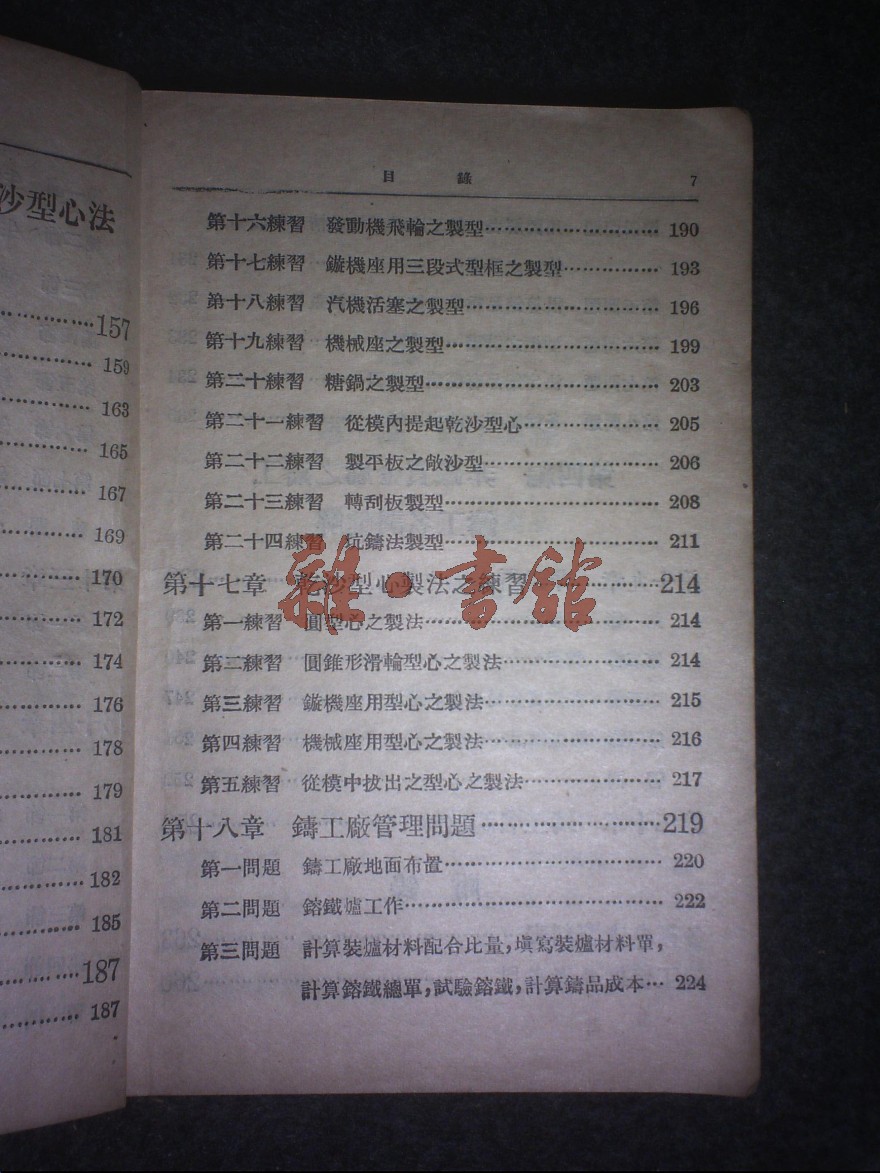 沙型心法
157
159
163
165
167
169
170
172
174
176
178
179
181
182
185
187
187
目 錄 7
第十六練習 發動機飛輪之製型 190
第十七練習 鏇機座用三段式型框之製型 193
第十八練習 汽機活塞之製型 196
第十九練習 機械座之製型 199
第二十練習 糖鍋之製型 203
第二十一練習 從模內提起乾沙型心 205
第二十二練習 製平板之敞沙型 206
第二十三練習 轉刮板製型 208
第二十四練習 坑鑄法製型 211
第十七章 乾沙型心製法之練習 214
第一練習 圓型心之製法 214
第二練習 圓錐形滑輪型心之製法 214
第三練習 鏇機座用型心之製法 215
第四練習 機械座用型心之製法 216
第五練習 從模中拔出之型心之製法 217
第十八章 鑄工廠管理問題 219
第一問題 鑄工廠地面布置 220
第二問題 鎔鐵爐工作 222
第三問題 計算裝爐材料配合比量，塡寫裝爐材料單，
計算鎔鐵總單，試驗鎔鐵，計算鑄品成本 224
雜·書館